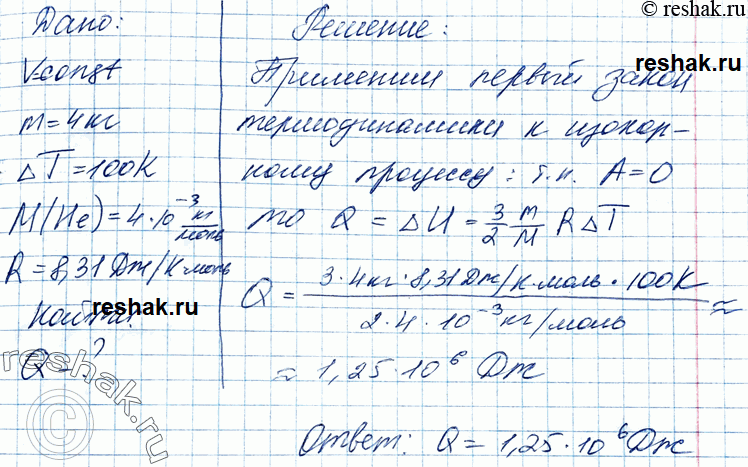 © reshak.ru
Дано:
V=const
m=4кг
ΔT=100К
M(He)=4·10⁻³ кг/моль
R=8,31 Дж/К·моль
Найти:
Q-?
Решение:
reshak.ru
Применим первый закон
термодинамики к изохор-
ному процессу: т.к. A=0
то Q = ΔU = 3/2 m/M RΔT
Q = 3·4кг·8,31Дж/К·моль·100К / 2·4·10⁻³кг/моль ≈
≈ 1,25·10⁶ Дж
Ответ: Q=1,25·10⁶Дж
reshak.ru
reshak.ru
reshak.ru